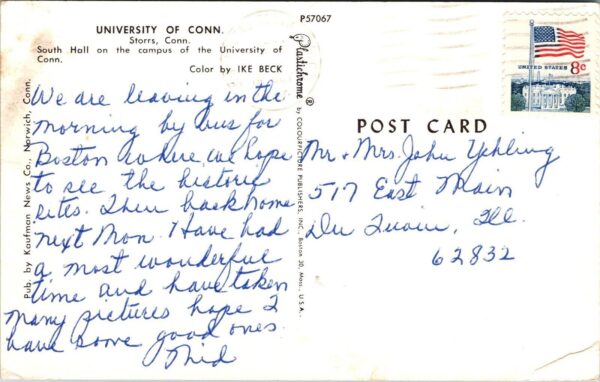 UNIVERSITY OF CONN.
Storrs, Conn.
South Hall on the campus of the University of
Conn.
Color by IKE BECK
We are leaving in the
morning by bus for
Boston where we hope
to see the historic
sites. Then back home
next Mon. I have had
a most wonderful
time and have taken
many pictures hope I
have some good ones.
Mid
Pub. by Kaufman News Co., Norwich, Conn.
P57067
Plastichrome ®
by COLOURPICTURE PUBLISHERS, INC., Boston 30, Mass., U.S.A.
UNITED STATES 8c
POST CARD
Mr. + Mrs. John Yehling
517 East Main
Du Quoin, Ill.
62832